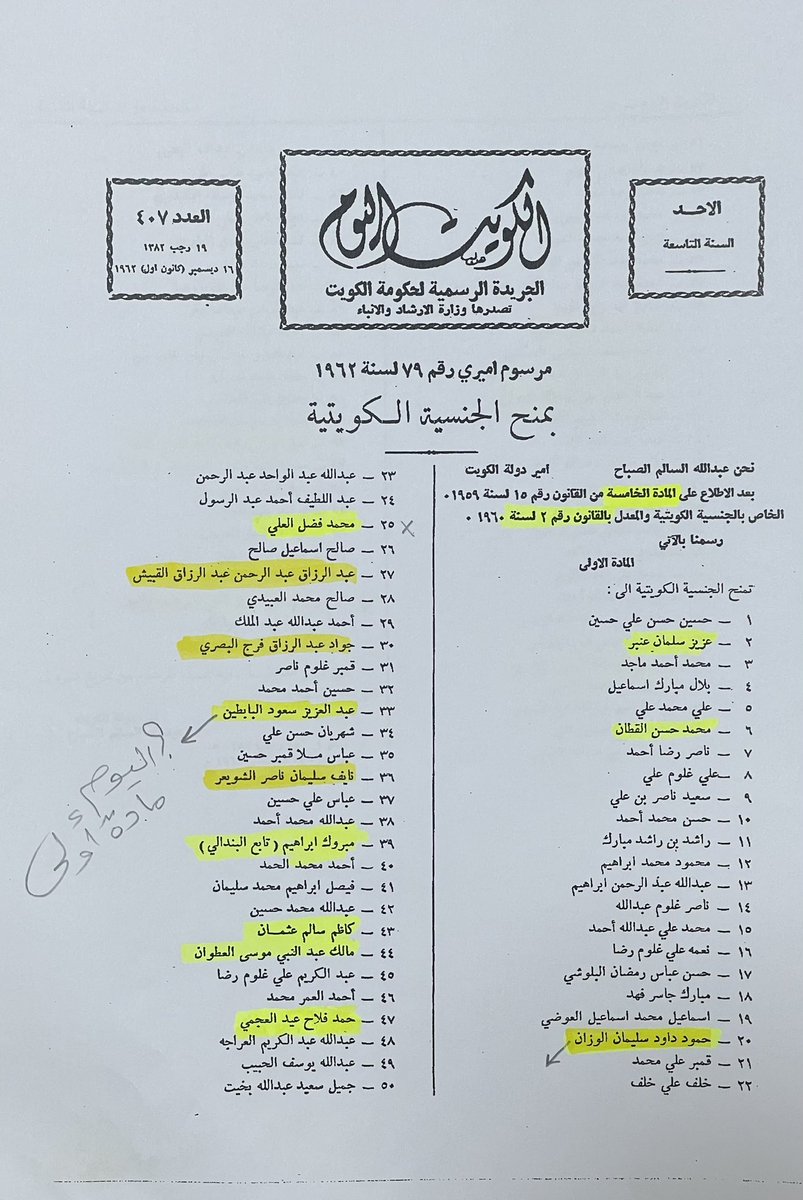 الاحد
السنة التاسعة
الكويت اليوم
الجريدة الرسمية لحكومة الكويت
تصدرها وزارة الارشاد والانباء
العدد ٤٠٧
١٩ رجب ١٣٨٢
١٦ ديسمبر (كانون اول) ١٩٦٢
مرسوم اميري رقم ٧٩ لسنة ١٩٦٢
بمنح الجنسية الكويتية
نحن عبدالله السالم الصباح امير دولة الكويت
بعد الاطلاع على المادة الخامسة من القانون رقم ١٥ لسنة ١٩٥٩٠
الخاص بالجنسية الكويتية والمعدل بالقانون رقم ٢ لسنة ١٩٦٠ ٠
رسمنا بالآتي
المادة الاولى
تمنح الجنسية الكويتية الى :
١ – حسين حسن علي حسين
٢ – عزيز سلمان عنبر
٣ – محمد أحمد ماجد
٤ – بلال مبارك اسماعيل
٥ – علي محمد علي
٦ – محمد حسن القطان
٧ – ناصر رضا أحمد
٨ – علي غلوم علي
٩ – سعيد ناصر بن علي
١٠ – حسن محمد أحمد
١١ – راشد بن راشد مبارك
١٢ – محمود محمد ابراهيم
١٣ – عبدالله عبد الرحمن ابراهيم
١٤ – ناصر غلوم عبدالله
١٥ – محمد علي عبدالله أحمد
١٦ – نعمه علي غلوم رضا
١٧ – حسن عباس رمضان البلوشي
١٨ – مبارك جاسر فهد
١٩ – اسماعيل محمد اسماعيل العوضي
٢٠ – حمود داود سليمان الوزان
٢١ – قمبر علي محمد
٢٢ – خلف علي خلف
٢٣ – عبدالله عبد الواحد عبد الرحمن
٢٤ – عبد اللطيف أحمد عبد الرسول
٢٥ – محمد فضل العلي
٢٦ – صالح اسماعيل صالح
٢٧ – عبد الرزاق عبد الرحمن عبد الرزاق القبيش
٢٨ – صالح محمد العبيدي
٢٩ – أحمد عبدالله عبد الملك
٣٠ – جواد عبد الرزاق فرج البصري
٣١ – قمبر غلوم ناصر
٣٢ – حسين أحمد محمد
٣٣ – عبد العزيز سعود البابطين
٣٤ – شهريان حسن علي
٣٥ – عباس ملا قمبر حسين
٣٦ – نايف سليمان ناصر الشويعر
٣٧ – عباس علي حسين
٣٨ – عبدالله محمد أحمد
٣٩ – مبروك ابراهيم (تابع البندالي)
٤٠ – أحمد محمد الحمد
٤١ – فيصل ابراهيم محمد سليمان
٤٢ – عبدالله محمد حسين
٤٣ – كاظم سالم عثمان
٤٤ – مالك عبد النبي موسى العطوان
٤٥ – عبد الكريم علي غلوم رضا
٤٦ – أحمد العمر محمد
٤٧ – حمد فلاح عيد العجمي
٤٨ – عبدالله عبد الكريم العراجه
٤٩ – عبدالله يوسف الحبيب
٥٠ – جميل سعيد عبدالله بخيت
اليوم
مادة أولى